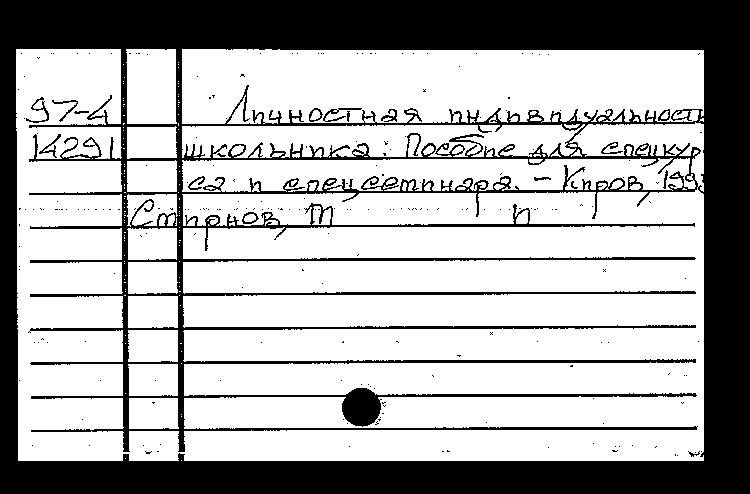 97-4 Личностная индивидуальность
14291 школьника: Пособие для спецкур-
са и спецсеминара. - Киров, 199
Смирнов, М и